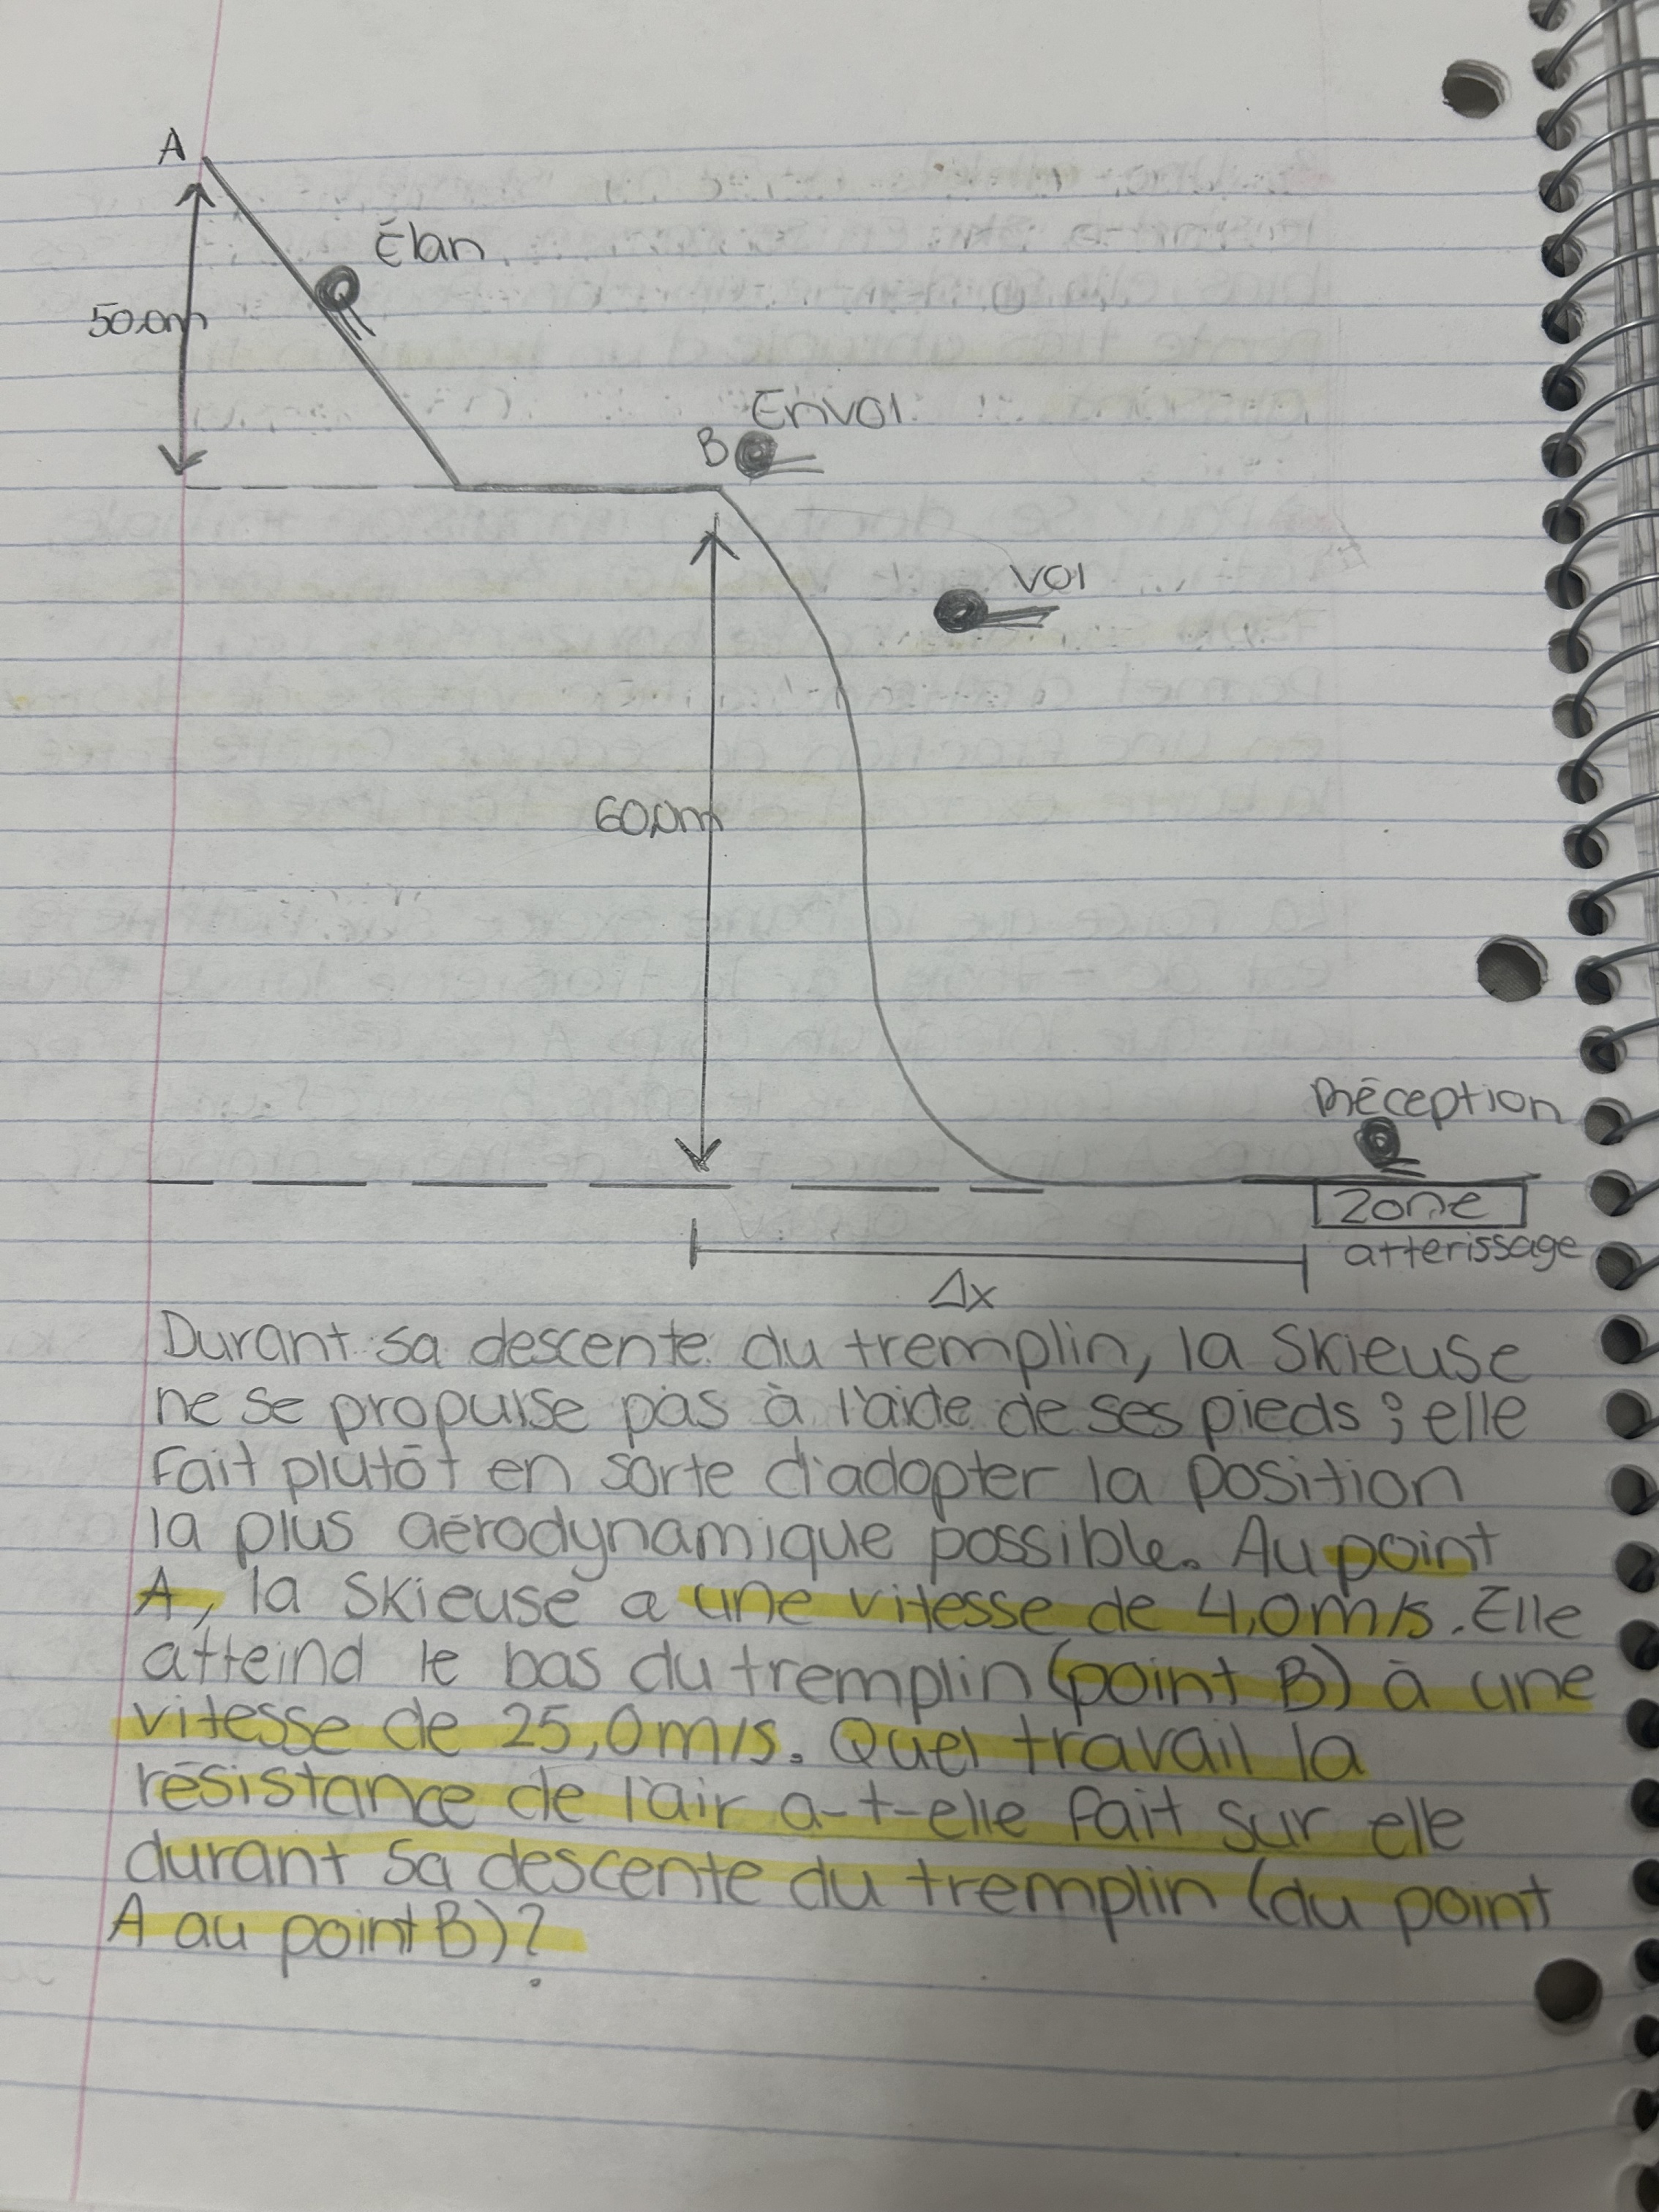 A
Élan
50,0m
Envol
B
vol
60,0m
Réception
Zone
atterissage
Δx
Durant sa descente du tremplin, la skieuse
ne se propulse pas à l'aide de ses pieds ; elle
fait plutôt en sorte d'adopter la position
la plus aérodynamique possible. Au point
A, la skieuse a une vitesse de 4,0m/s. Elle
atteind le bas du tremplin (point B) à une
vitesse de 25,0m/s. Quel travail la
résistance de l'air a-t-elle fait sur elle
durant sa descente du tremplin (du point
A au point B)?